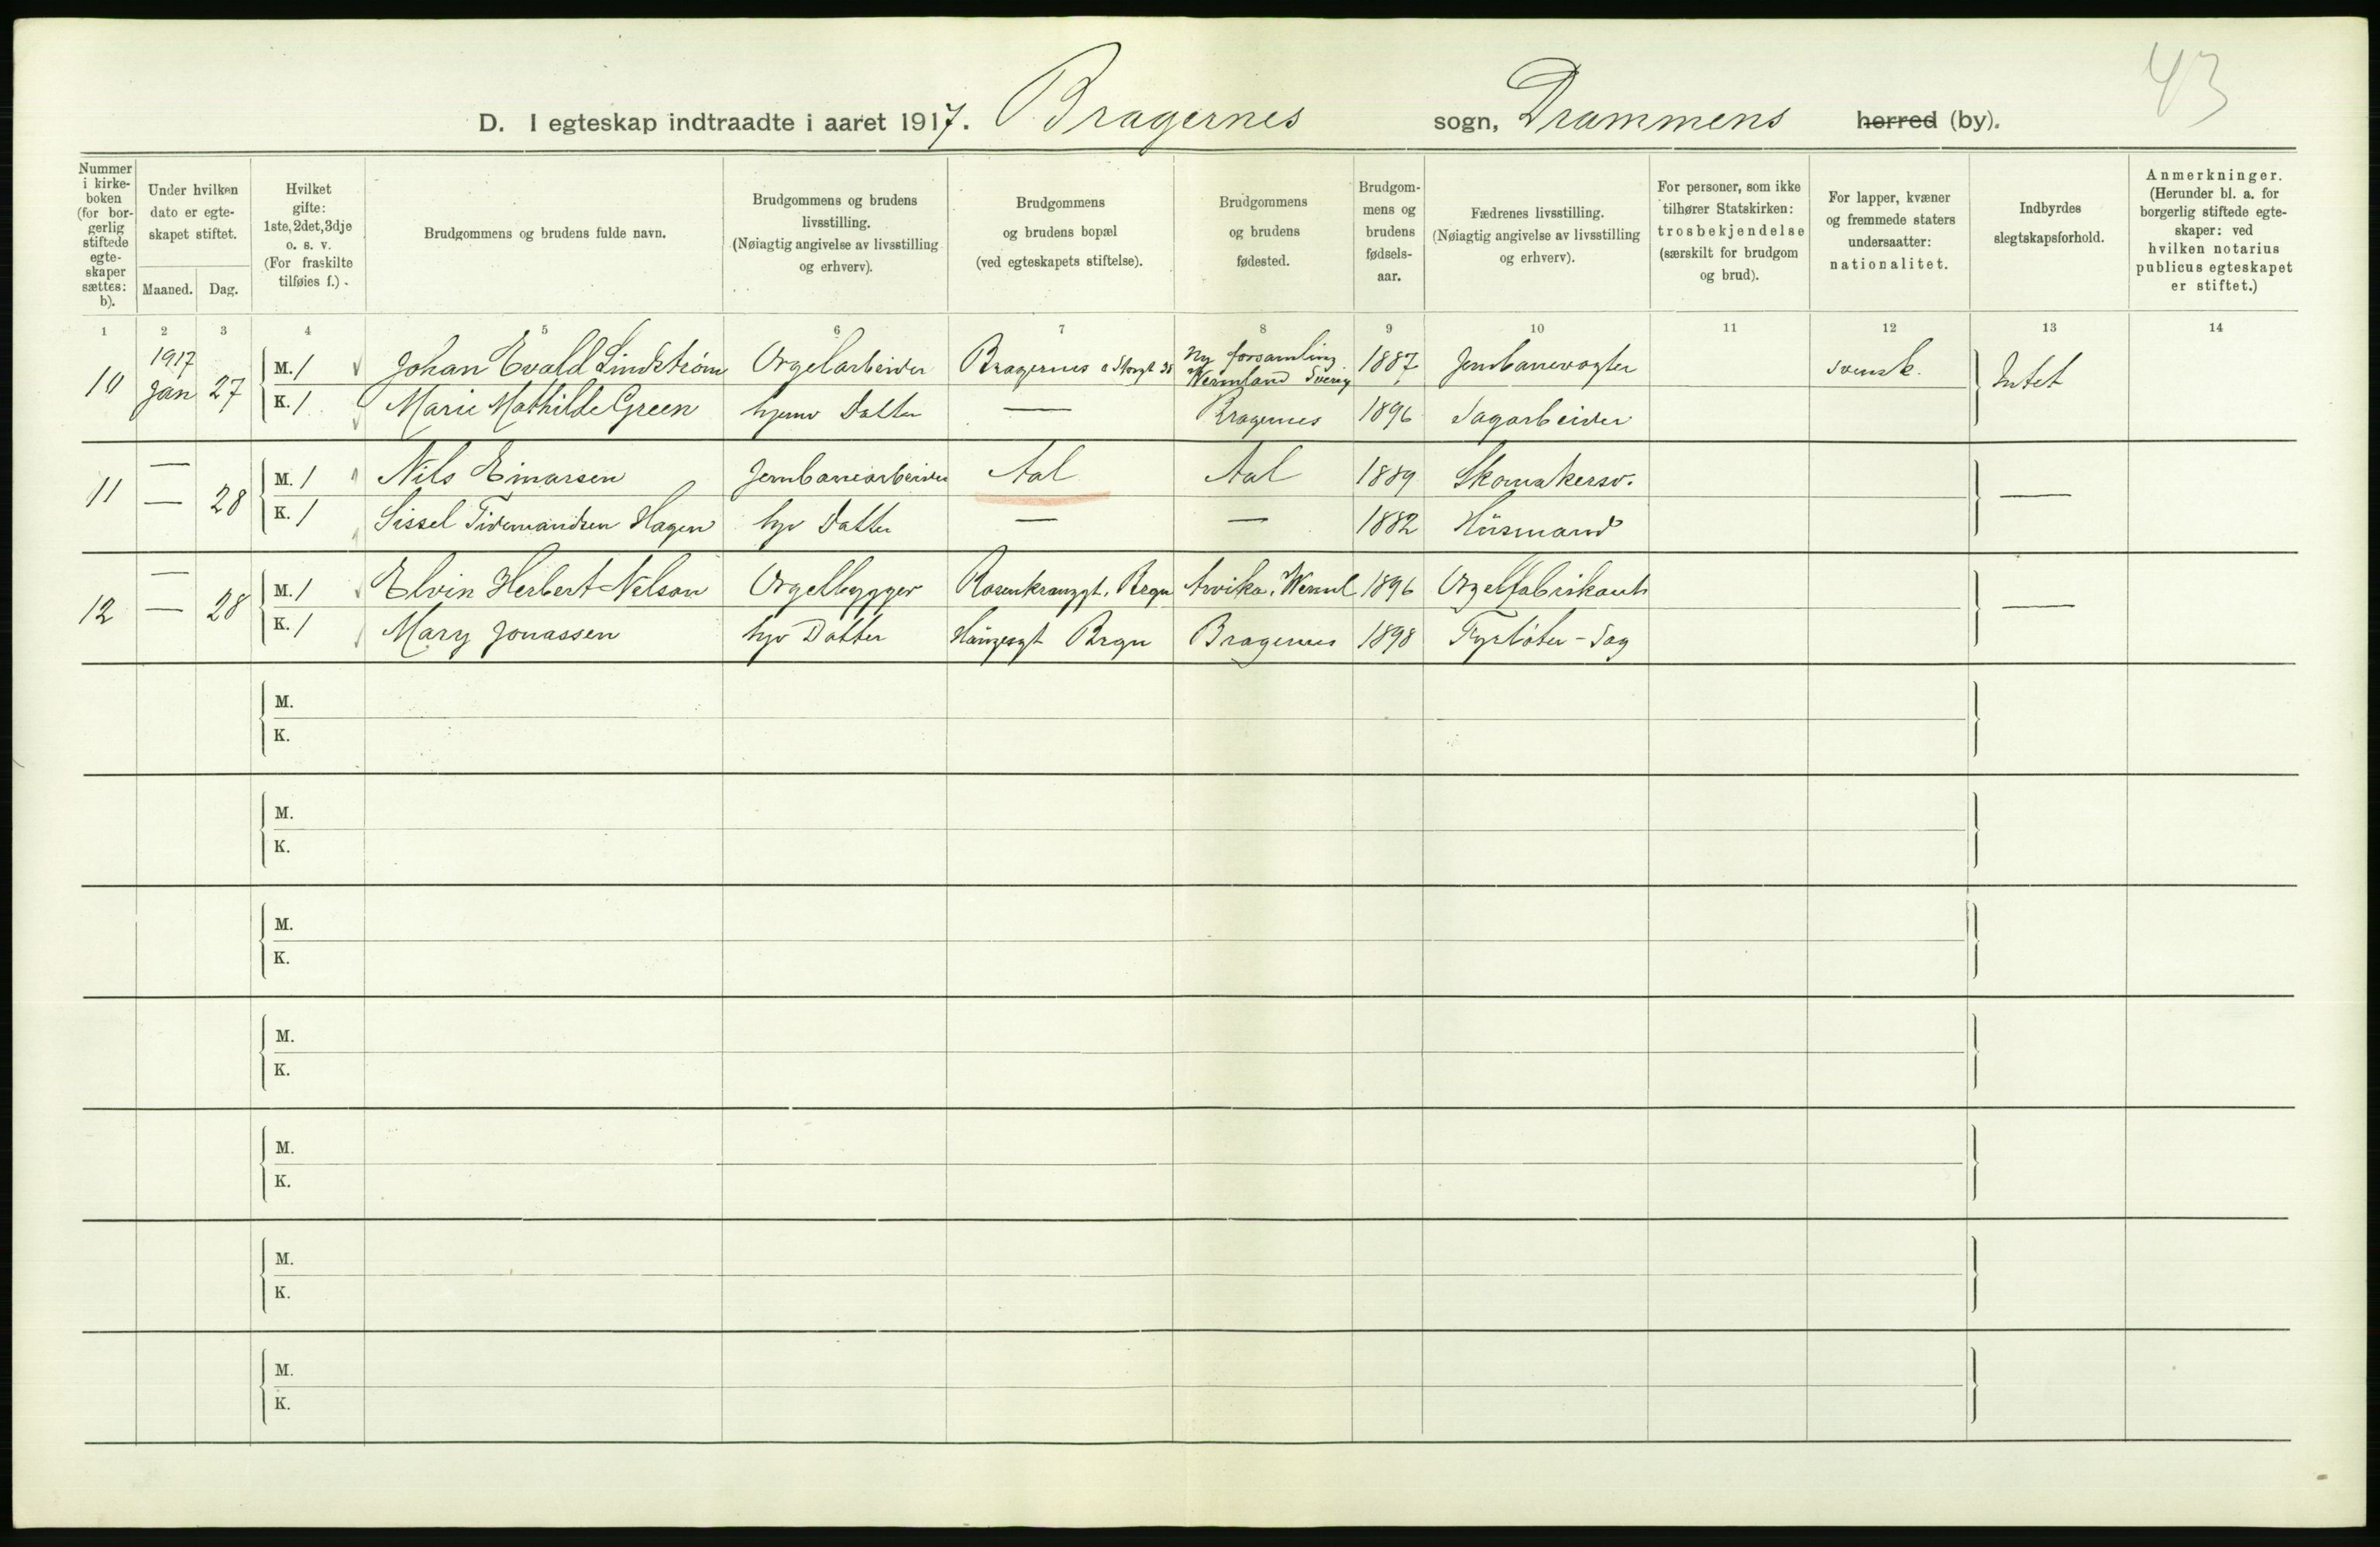 43
D. I egteskap indtraadte i aaret 1917. Bragernes sogn, Drammens herred (by).
Nummer i kirke-boken (for bor-gerlig stiftede egte-skaper sættes: b).
Under hvilken dato er egte-skapet stiftet.
Maaned. Dag.
Hvilket gifte: 1ste, 2det, 3dje o. s. v. (For fraskilte tilføies f.)
Brudgommens og brudens fulde navn.
Brudgommens og brudens livsstilling. (Nøiagtig angivelse av livsstilling og erhverv).
Brudgommens og brudens bopæl (ved egteskapets stiftelse).
Brudgommens og brudens fødested.
Brudgom-mens og brudens fødsels-aar.
Fædrenes livsstilling. (Nøiagtig angivelse av livsstilling og erhverv).
For personer, som ikke tilhører Statskirken: trosbekjendelse (særskilt for brudgom og brud).
For lapper, kvæner og fremmede staters undersaatter: nationalitet.
Indbyrdes slegtskapsforhold.
Anmerkninger. (Herunder bl. a. for borgerlig stiftede egte-skaper: ved hvilken notarius publicus egteskapet er stiftet.)
1 2 3 4 5 6 7 8 9 10 11 12 13 14
10 1917 Jan 27 M. 1 Johan Evald Lindstrøm Orgelarbeider Bragernes Storgt 38 Ny forsamling Wermland Sverig 1887 Jernbanevogter svensk. Intet
K. 1 Marie Mathilde Green hjemv Datter — Bragernes 1896 Sagarbeider
11 — — 28 M. 1 Nils Einarsen Jernbanearbeider Aal Aal 1889 Skomakersv. —
K. 1 Sissel Tidemandsen Hagen hjv Datter — — 1882 Husmand
12 — — 28 M. 1 Elvin Herbert Nelson Orgelbygger Rosenkranzgt. Bragn Arvika, Werml 1896 Orgelfabrikant —
K. 1 Mary Jonassen hjv Datter Haugesgt Brgn Bragernes 1898 Fyrbøter - Sag
M.
K.
M.
K.
M.
K.
M.
K.
M.
K.
M.
K.
M.
K.